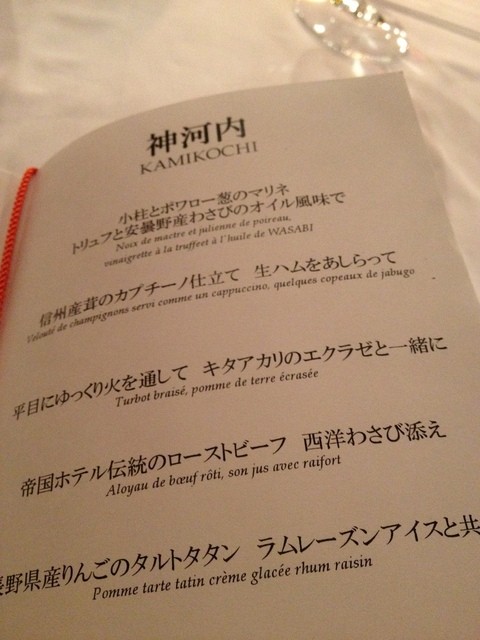 神河内
KAMIKOCHI
小柱とポワロー葱のマリネ
トリュフと安曇野産わさびのオイル風味で
Noix de mactre et julienne de poireau,
vinaigrette à la truffeet à l'huile de WASABI
信州産茸のカプチーノ仕立て 生ハムをあしらって
Velouté de champignons servi comme un cappuccino, quelques copeaux de jabugo
平目にゆっくり火を通して キタアカリのエクラゼと一緒に
Turbot braisé, pomme de terre écrasée
帝国ホテル伝統のローストビーフ 西洋わさび添え
Aloyau de bœuf rôti, son jus avec raifort
長野県産りんごのタルトタタン ラムレーズンアイスと共
Pomme tarte tatin crème glacée rhum raisin